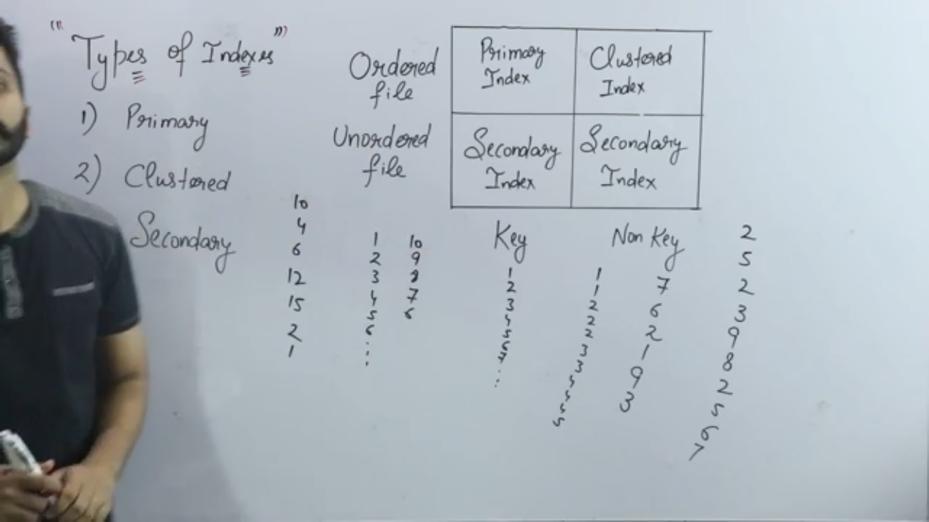 "Types of Indexes"
1) Primary
2) Clustered
Secondary
Ordered file
Unordered file
Primary Index
Clustered Index
Secondary Index
Secondary Index
Key
Non Key
10
4
6
12
15
2
1
1
2
3
4
5
6
10
9
8
7
6
1
2
3
4
5
6
7
1
1
2
2
2
3
3
4
4
4
5
7
6
2
1
9
3
2
5
2
3
9
8
2
5
6
7